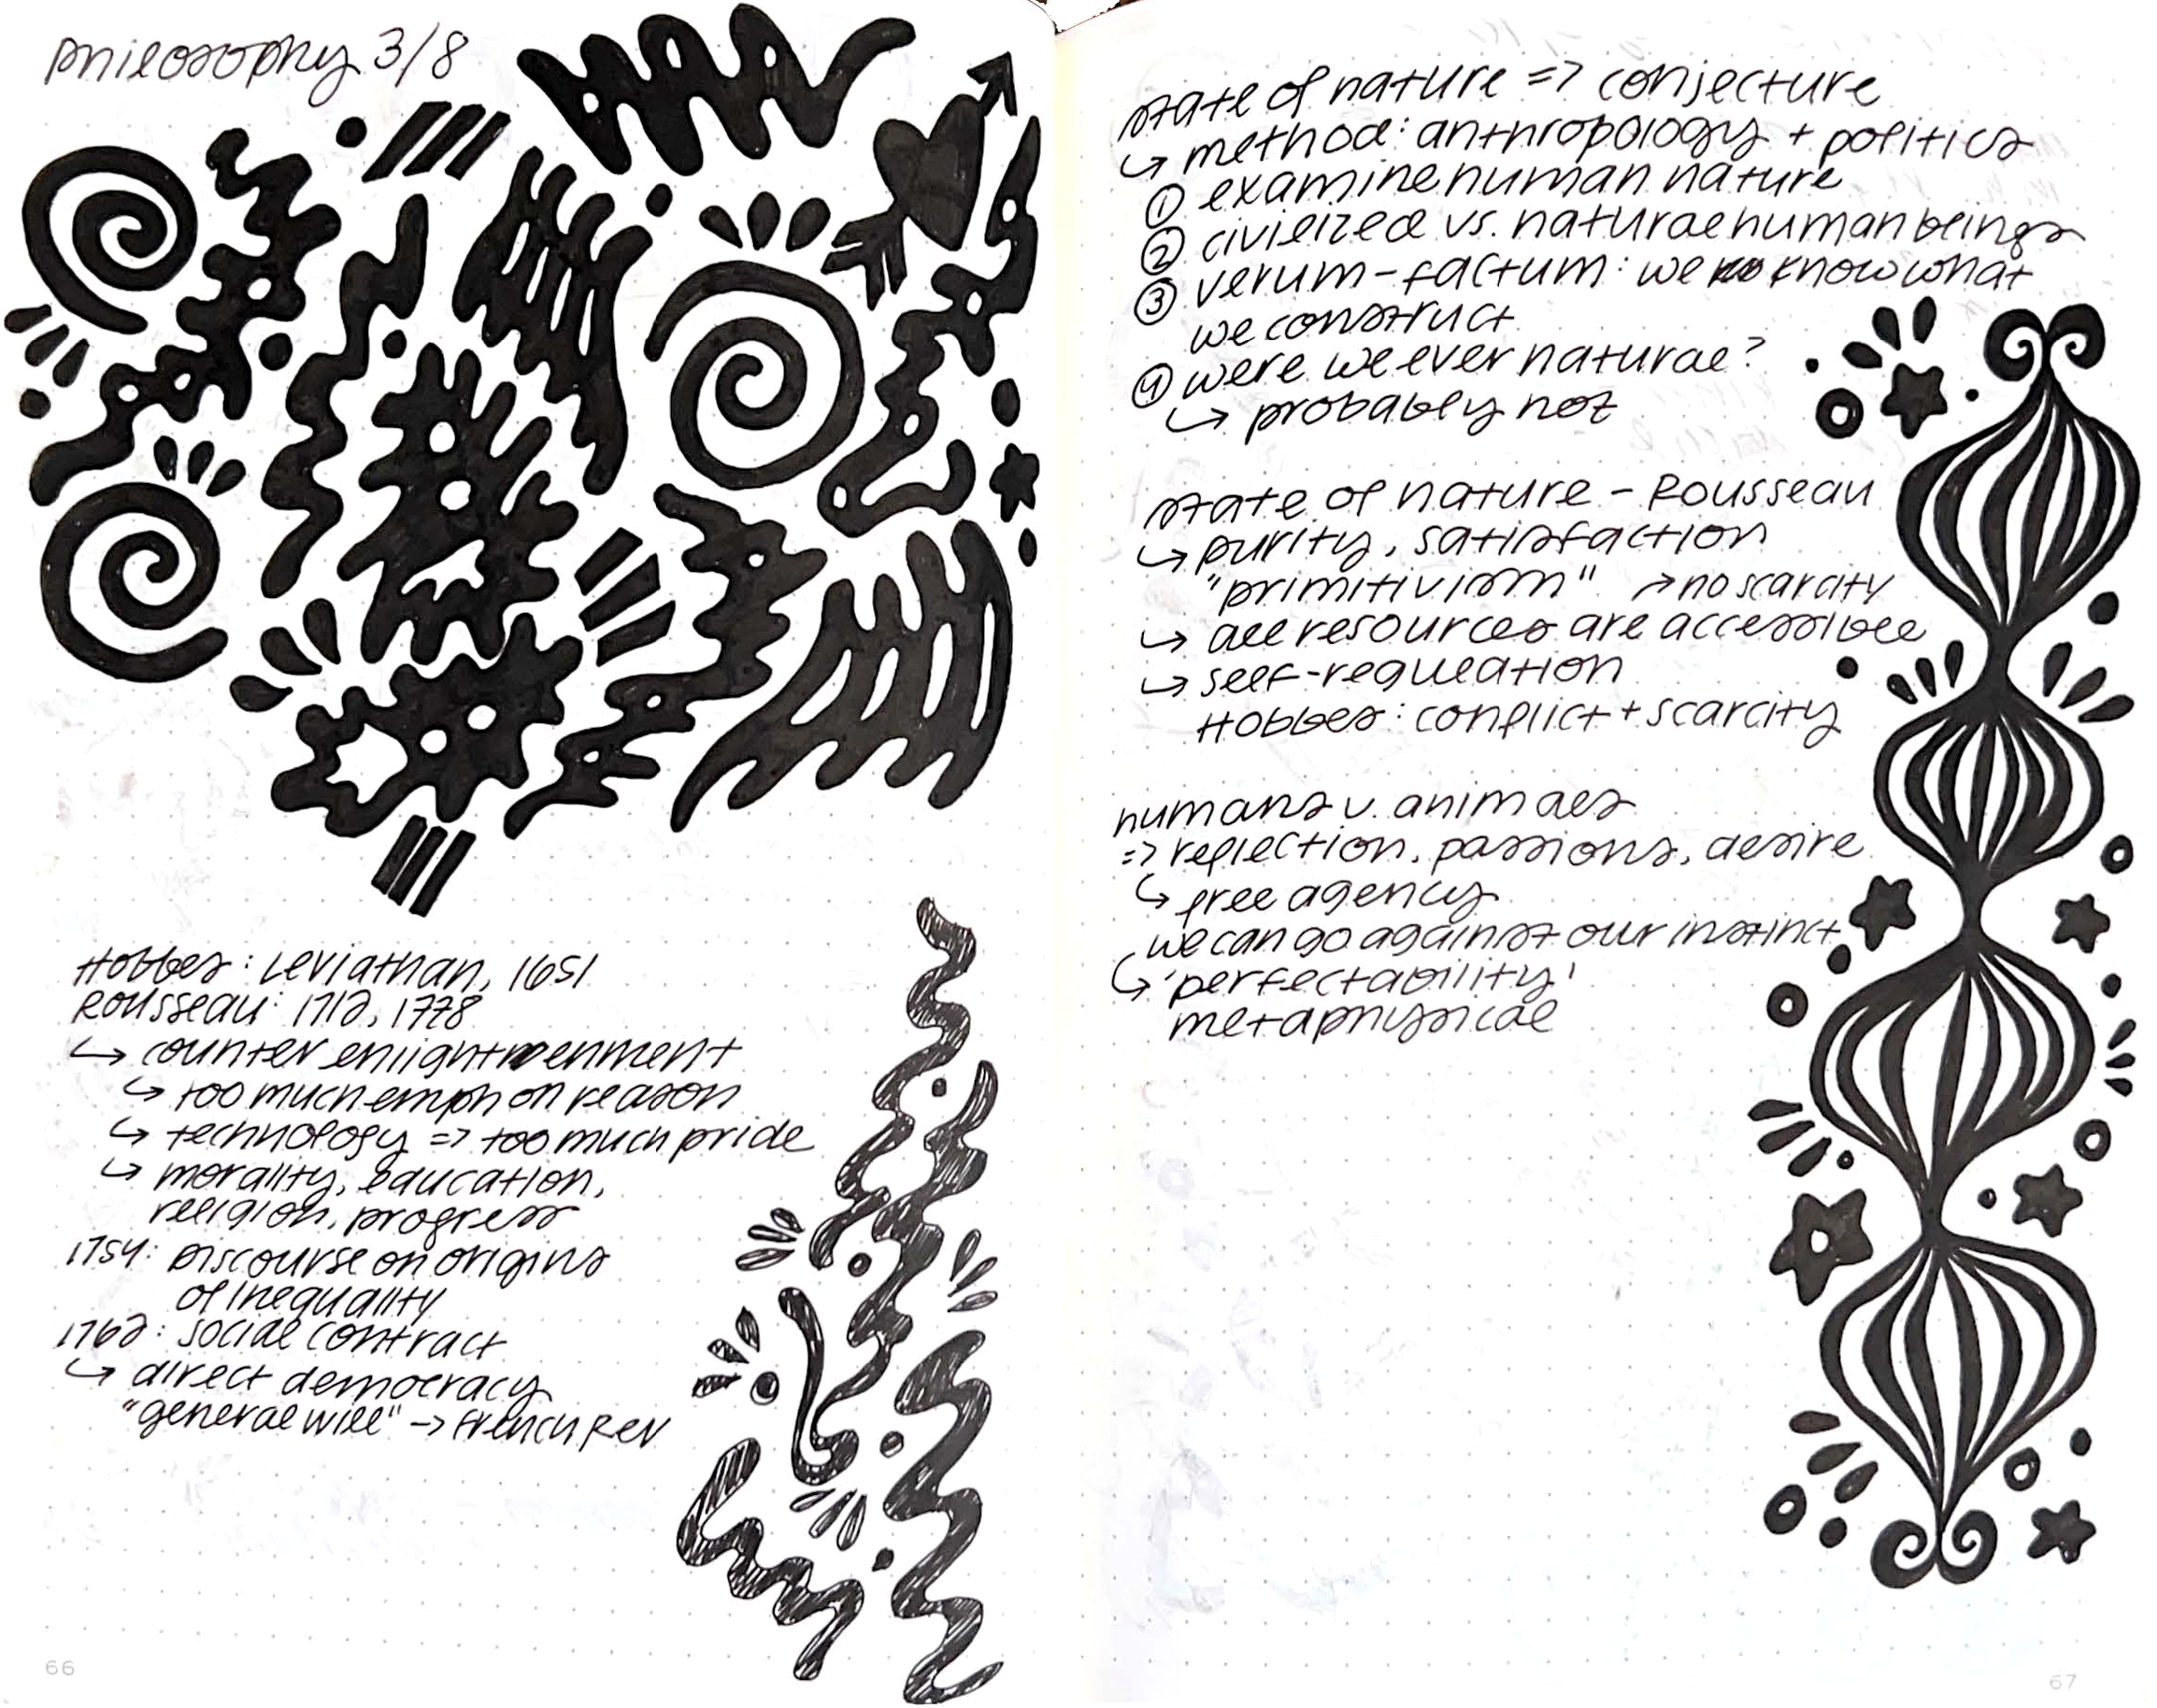 philosophy 3/8
Hobbes: Leviathan, 1651
Rousseau: 1712, 1778
↳ counter enlightenment
↳ too much emph on reason
↳ technology => too much pride
↳ morality, education,
religion, progress
1754: Discourse on origins
of Inequality
1762: social contract
↳ direct democracy
"general will" -> French Rev
66
state of nature => conjecture
↳ method: anthropology + politics
① examine human nature
② civilized vs. natural human beings
③ verum-factum: we know what
we construct
④ were we ever natural?
↳ probably not
state of nature - Rousseau
↳ purity, satisfaction
"primitivism" ↗ no scarcity
↳ all resources are accessible
↳ self-regulation
Hobbes: conflict + scarcity
humans v. animals
=> reflection, passions, desire
↳ free agency
we can go against our instinct
↳ 'perfectability'
metaphysical
67